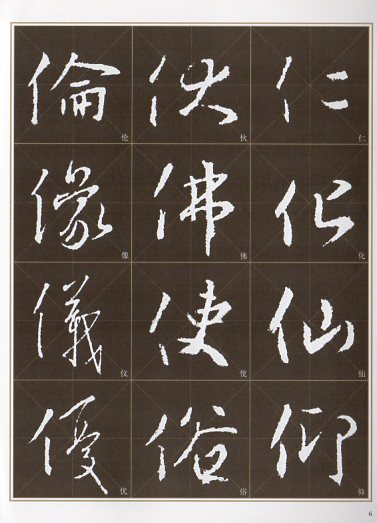 仁
仁
化
化
仙
仙
仰
佛
佛
使
俗
俗
倫
伦
像
像
儀
仪
優
优
6